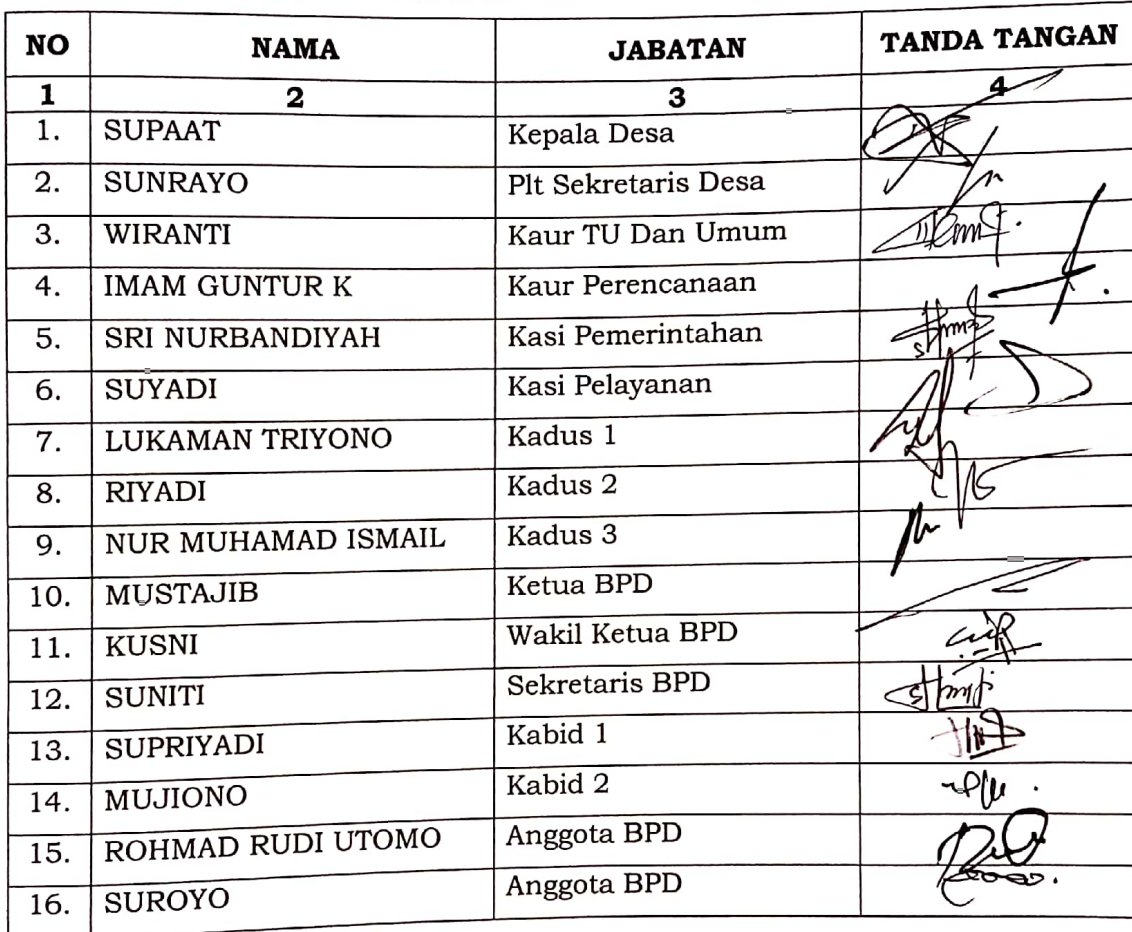 NO NAMA JABATAN TANDA TANGAN
1 2 3 4
1. SUPAAT Kepala Desa
2. SUNRAYO Plt Sekretaris Desa
3. WIRANTI Kaur TU Dan Umum
4. IMAM GUNTUR K Kaur Perencanaan
5. SRI NURBANDIYAH Kasi Pemerintahan
6. SUYADI Kasi Pelayanan
7. LUKAMAN TRIYONO Kadus 1
8. RIYADI Kadus 2
9. NUR MUHAMAD ISMAIL Kadus 3
10. MUSTAJIB Ketua BPD
11. KUSNI Wakil Ketua BPD
12. SUNITI Sekretaris BPD
13. SUPRIYADI Kabid 1
14. MUJIONO Kabid 2
15. ROHMAD RUDI UTOMO Anggota BPD
16. SUROYO Anggota BPD